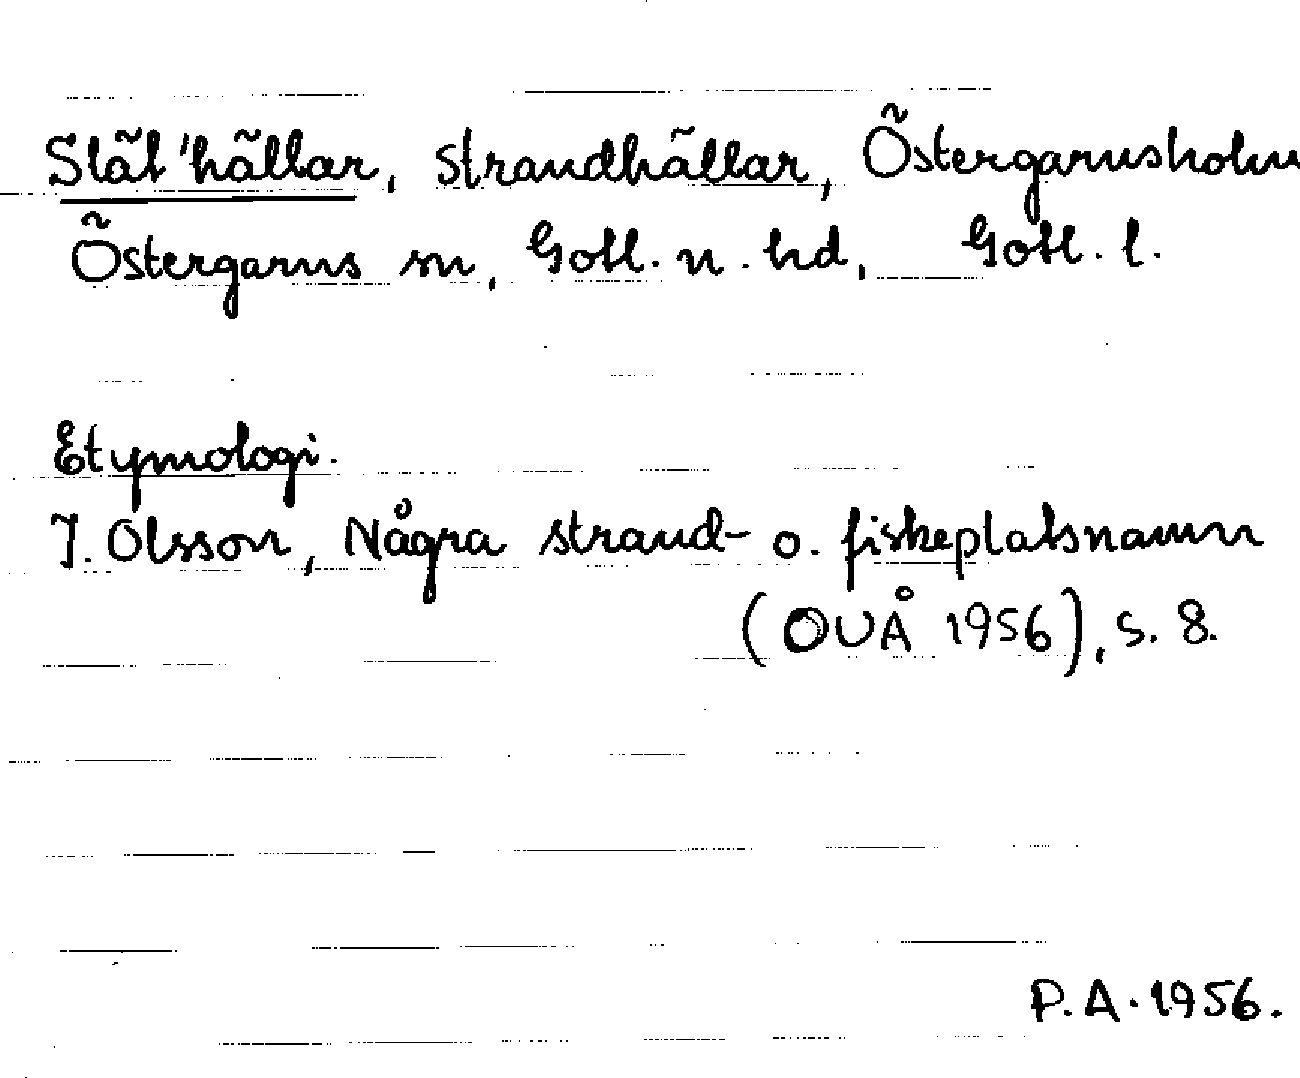 Slät'hällar, strandhällar, Östergarnsholm
Östergarns sn, Gotl. n. hd, Gotl. l.
Etymologi.
I. Olsson, Några strand- o. fiskeplatsnamn
(OUÅ 1956), s. 8.
P. A. 1956.